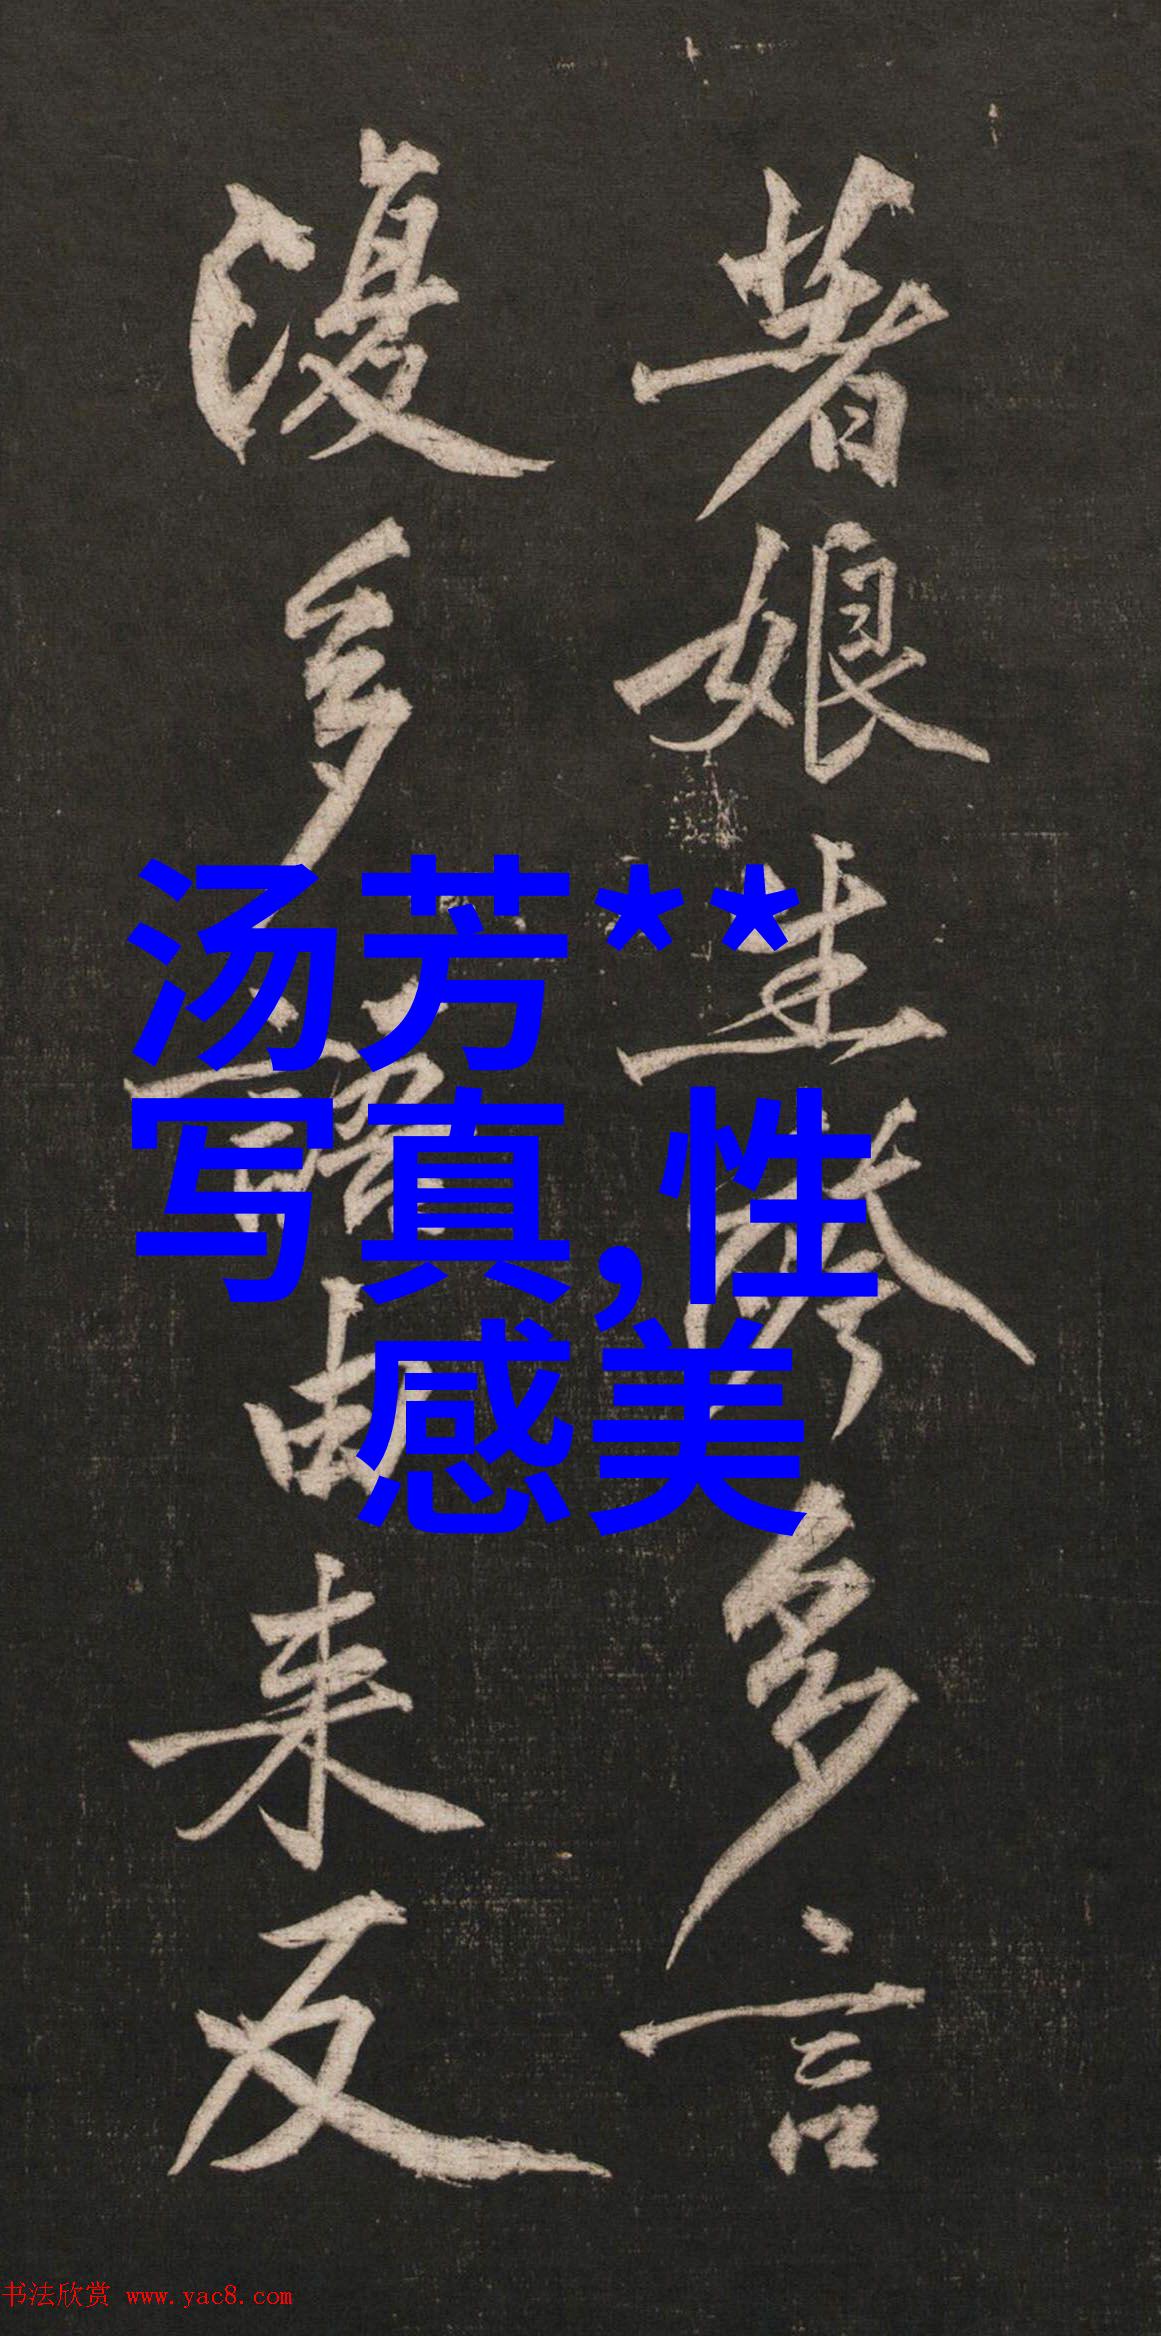 著娘生袴多言
復多語由来反
汤芳**
写真,性
感美
书法欣赏 www.yac8.com